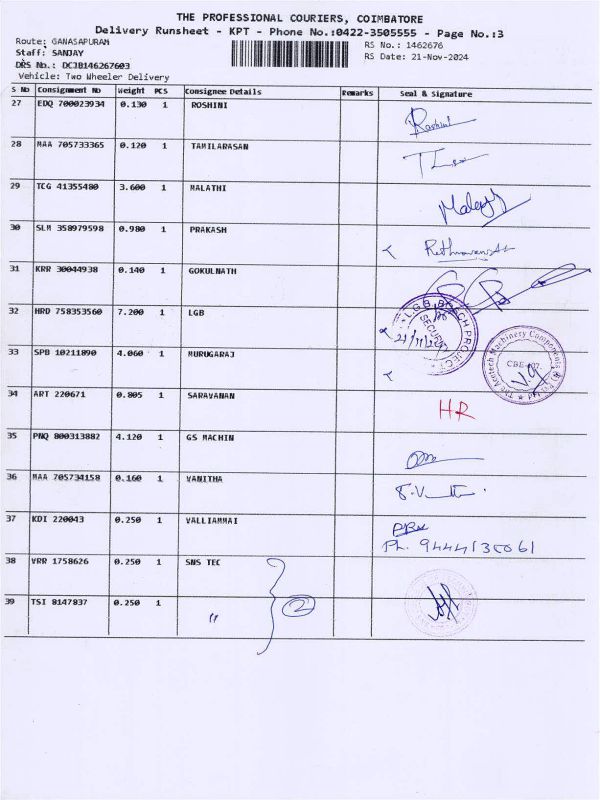 THE PROFESSIONAL COURIERS, COIMBATORE
Delivery Runsheet - KPT - Phone No.:0422-3505555 - Page No.:3
Route: GANASAPURAM
RS No.: 1462676
Staff: SANJAY
RS Date: 21-Nov-2024
DRS No.: DCJB146267603
Vehicle: Two Wheeler Delivery
S No Consignment No Weight PCS Consignee Details Remarks Seal & Signature
27 EDQ 700023934 0.130 1 ROSHINI
Roshini
28 MAA 705733365 0.120 1 TAMILARASAN
29 TCG 41355480 3.600 1 MALATHI
30 SLM 358979598 0.980 1 PRAKASH
31 KRR 30044938 0.140 1 GOKULNATH
32 HRD 758353560 7.200 1 LGB
L.G.B. BOSCH PROJECT
SECURITY
33 SPB 10211890 4.060 1 MURUGARAJ
Machinery Components
CBE
34 ART 220671 0.805 1 SARAVANAN
HR
35 PNQ 800313882 4.120 1 GS MACHIN
36 MAA 705734158 0.160 1 VANITHA
37 KDI 220043 0.250 1 VALLIAMMAI
Ph. 9444135061
38 VRR 1758626 0.250 1 SNS TEC
39 TSI 8147837 0.250 1 "
2